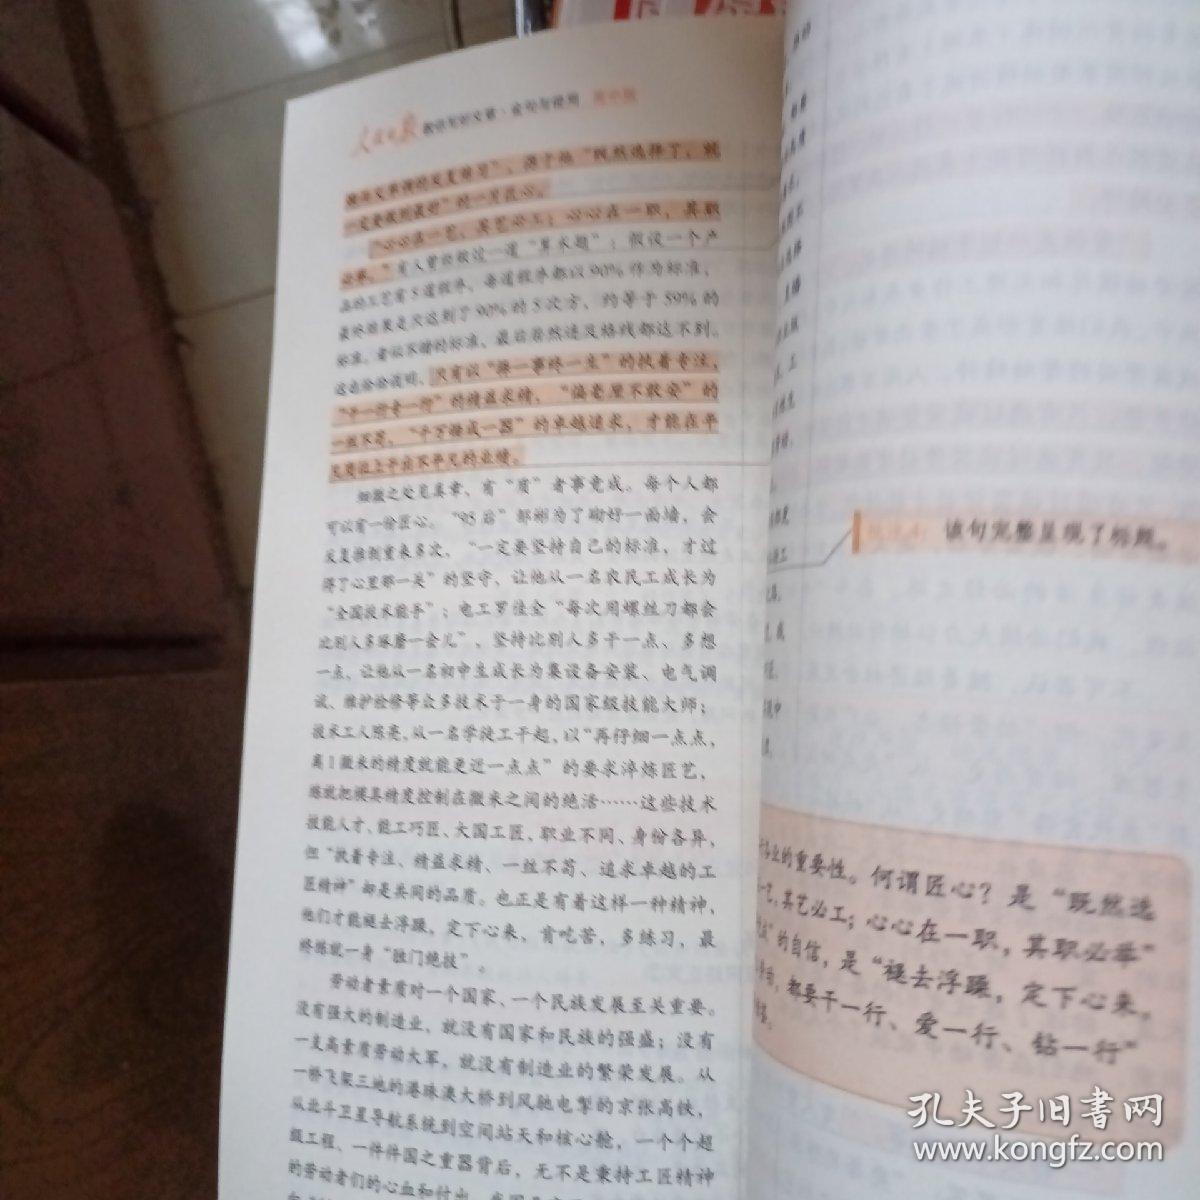 人民日报 教你写好文章·金句与使用 高中版
一定要做到最好”的一片匠心。
“心心在一艺,其艺必工;心心在一职,其职
必举。”有人曾经做过一道“算术题”:假设一个产
品的工艺有5道程序,每道程序都以90%作为标准,
最终结果是只达到了90%的5次方,约等于59%的
标准。看似不错的标准,最后居然连及格线都达不到。
这也恰恰说明,只有以“择一事终一生”的执着专注,
“干一行专一行”的精益求精,“偏毫厘不敢安”的
一丝不苟,“千万锤成一器”的卓越追求,才能在平
凡岗位上干出不平凡的业绩。
细微之处见真章,有“质”者事竟成。每个人都
可以有一份匠心。“95后”邹彬为了砌好一面墙,会
反复推倒重来多次,“一定要坚持自己的标准,才过
得了心里那一关”的坚守,让他从一名农民工成长为
“全国技术能手”;电工罗佳全“每次用螺丝刀都会
比别人多琢磨一会儿”,坚持比别人多干一点、多想
一点,让他从一名初中生成长为集设备安装、电气调
试、维护检修等众多技术于一身的国家级技能大师;
技术工人陈亮,从一名学徒工干起,以“再仔细一点点,
离1微米的精度就能更近一点点”的要求淬炼匠艺,
练就把模具精度控制在微米之间的绝活……这些技术
技能人才、能工巧匠、大国工匠,职业不同、身份各异,
但“执着专注、精益求精、一丝不苟、追求卓越的工
匠精神”都是共同的品质。也正是有着这样一种精神,
他们才能褪去浮躁,定下心来,肯吃苦,多练习,最
终练就一身“独门绝技”。
劳动者素质对一个国家、一个民族发展至关重要。
没有强大的制造业,就没有国家和民族的强盛;没有
一支高素质劳动大军,就没有制造业的繁荣发展。从
一桥飞架三地的港珠澳大桥到风驰电掣的京张高铁,
从北斗卫星导航系统到空间站天和核心舱,一个个超
级工程、一件件国之重器背后,无不是秉持工匠精神
的劳动者们的心血和付出。
该句完整呈现了标题。
各业的重要性。何谓匠心?是“既然选
艺,其艺必工;心心在一职,其职必举”
的自信,是“褪去浮躁,定下心来,
都要干一行、爱一行、钻一行”
孔夫子旧书网
www.kongfz.com